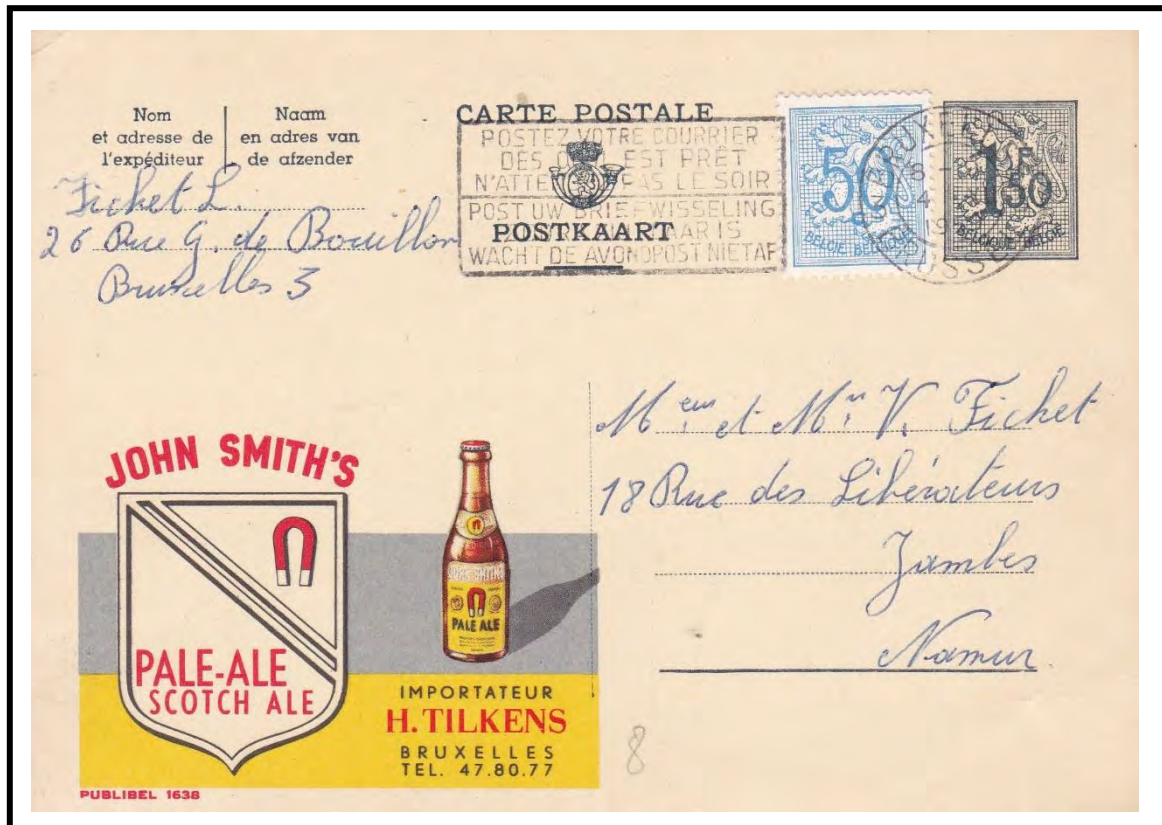 Nom
et adresse de
l'expéditeur
Naam
en adres van
de afzender
Fichet L.
26 Rue G. de Bouillon
Bruxelles 3
CARTE POSTALE
POSTEZ VOTRE COURRIER
DES EST PRÊT
N'ATTE PAS LE SOIR
POST UW BRIEFWISSELING
POSTKAART
AAR IS
WACHT DE AVONDPOST NIET AF
50
BELGIË
1F50
BELGIQUE BELGIË
M.eur et M.
V. Fichet
18 Rue des Libérateurs
Jambes
Namur
JOHN SMITH'S
PALE-ALE
SCOTCH ALE
PALE ALE
IMPORTATEUR
H. TILKENS
BRUXELLES
TEL. 47.80.77
PUBLIBEL 1638
8